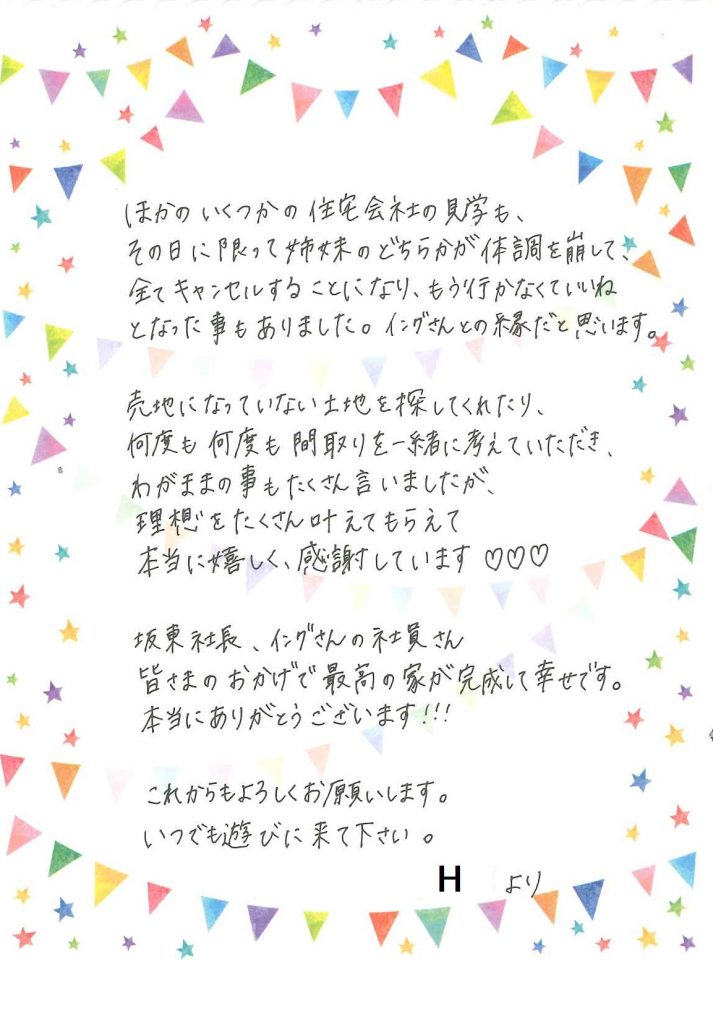 ほかの いくつかの 住宅会社の見学も、
その日に限って姉妹のどちらかが体調を崩して、
全てキャンセルすることになり、もう行かなくていいね
となった事もありました。イングさんとの縁だと思います。
売地になっていない土地を探してくれたり、
何度も何度も間取りを一緒に考えていただき、
わがままの事もたくさん言いましたが、
理想をたくさん叶えてもらえて
本当に嬉しく、感謝しています♡♡♡
坂東社長、イングさんの社員さん
皆さまのおかげで最高の家が完成して幸せです。
本当にありがとうございます!!!
これからもよろしくお願いします。
いつでも遊びに来て下さい。
H より